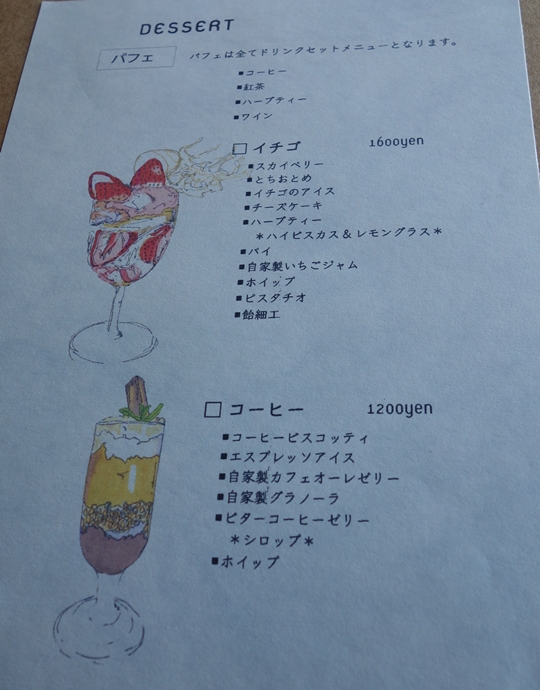 DESSERT
パフェ
パフェは全てドリンクセットメニューとなります。
■コーヒー
■紅茶
■ハーブティー
■ワイン
□イチゴ 1600yen
■スカイベリー
■とちおとめ
■イチゴのアイス
■チーズケーキ
■ハーブティー
＊ハイビスカス＆レモングラス＊
■パイ
■自家製いちごジャム
■ホイップ
■ピスタチオ
■飴細工
□コーヒー 1200yen
■コーヒービスコッティ
■エスプレッソアイス
■自家製カフェオーレゼリー
■自家製グラノーラ
■ビターコーヒーゼリー
＊シロップ＊
■ホイップ